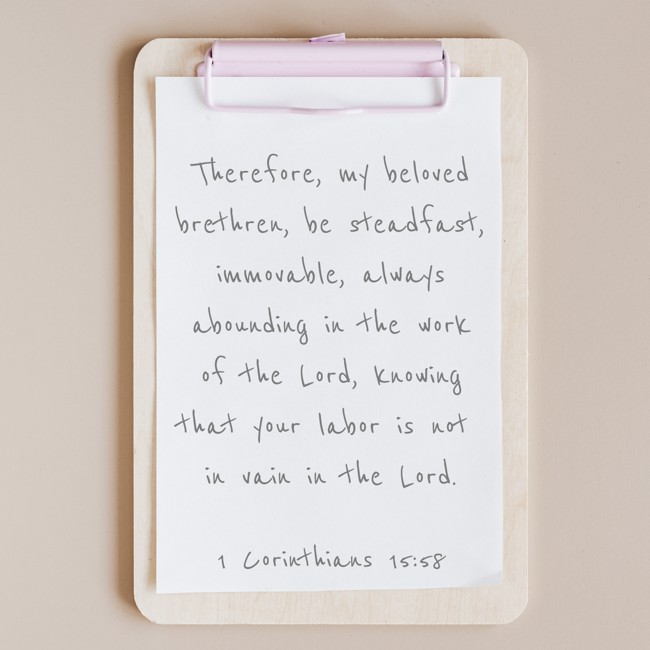 Therefore, my beloved
brethren, be steadfast,
immovable, always
abounding in the work
of the Lord, knowing
that your labor is not
in vain in the Lord.
1 Corinthians 15:58